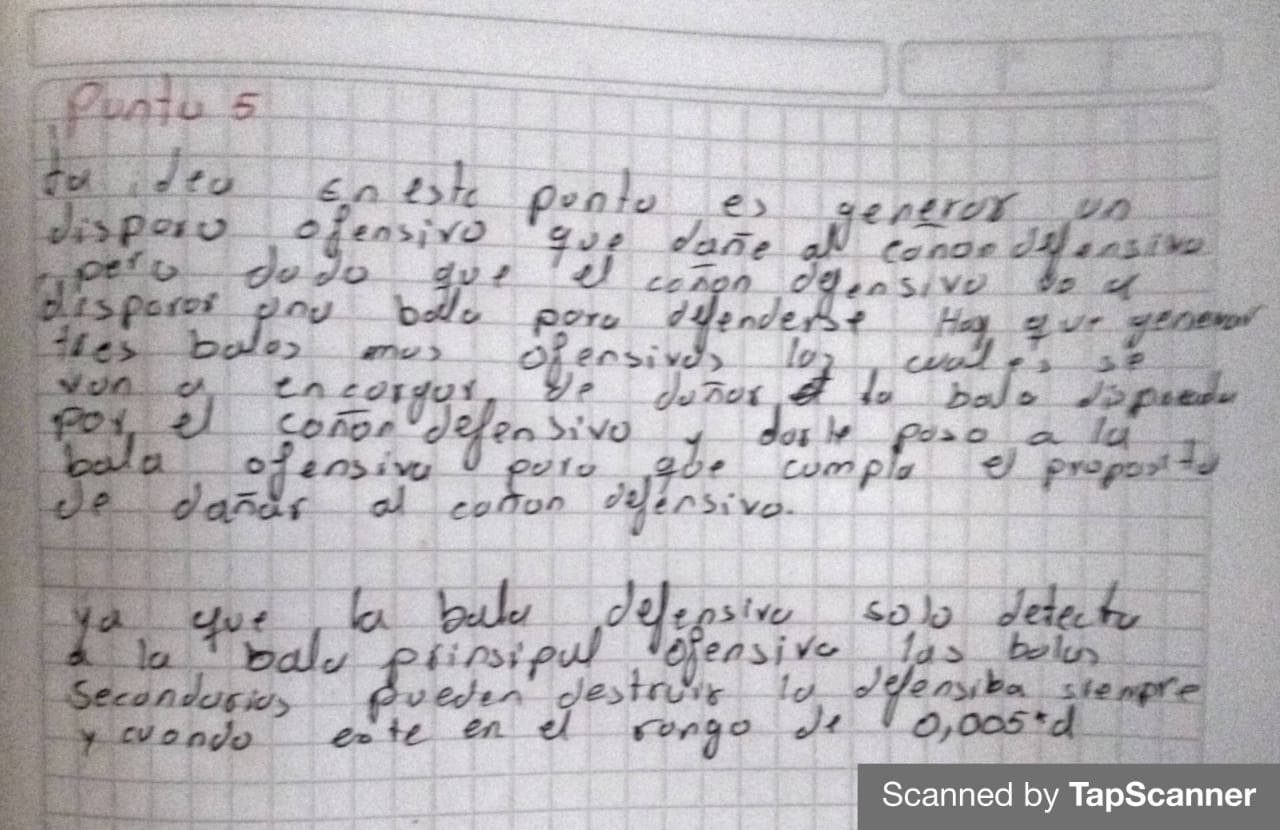 Punto 5
La idea en este punto es generar un
disparo ofensivo que dañe al cañon defensivo
, pero dado que el cañon defensivo va a
disparar una bala para defenderse Hay que generar
tres balas mas ofensivas las cuales se
van a encargar de dañar la bala
por el cañon defensivo y darle paso a la
bala ofensiva para que cumpla el proposito
de dañar al cañon defensivo.
ya que la bala defensiva solo detecta
a la bala prinsipal ofensiva las balas
secundarias pueden destruir la defensiba siempre
y cuando este en el rango de 0,005*d
Scanned by TapScanner